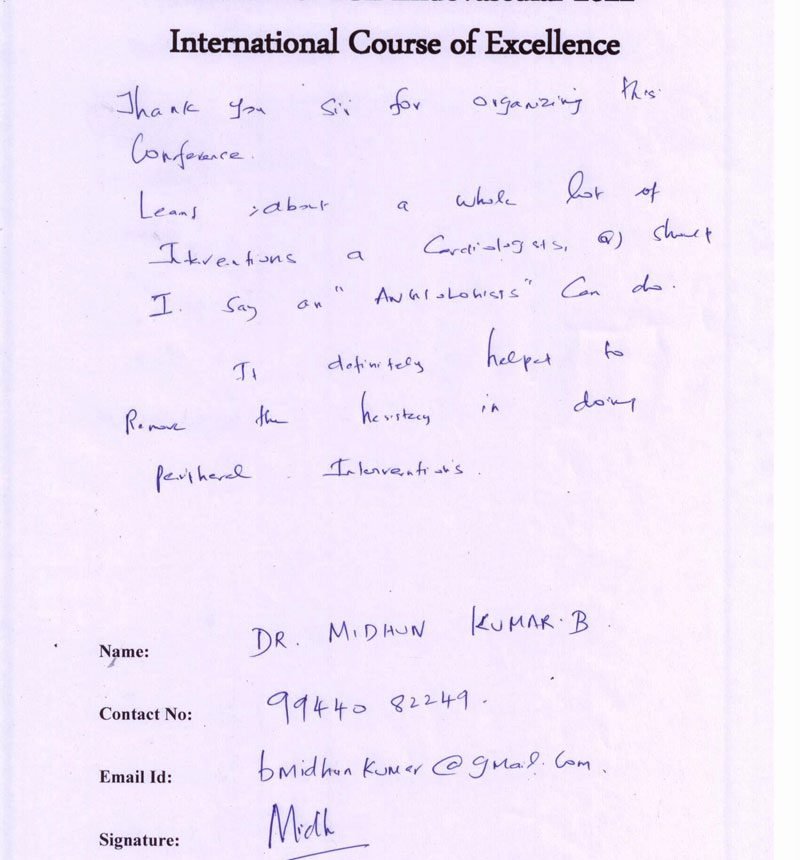 International Course of Excellence
Thank you Sir for organizing this
Conference.
Learnt about a whole lot of
Interventions a Cardiologists, or should
I say an "ANGIOLOGISTS" Can do.
It definitely helped to
Remove the hesitacy in doing
peripheral Interventions.
Name: DR. MIDHUN KUMAR. B
Contact No: 99440 82249.
Email Id: bmidhunkumar@gmail.com.
Signature: Midh